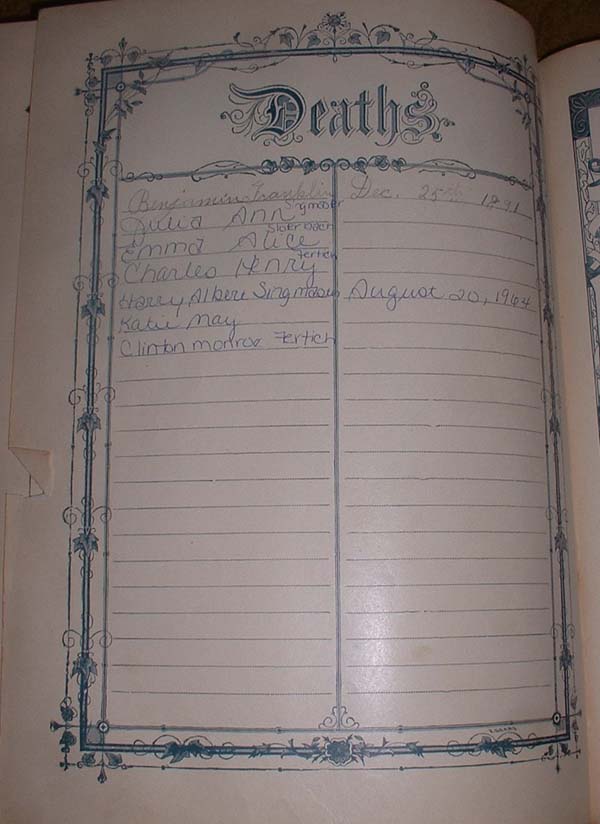 Deaths.
Benjamin Franklin Dec. 25th 1891
Singmaster
Julia Ann
Emma Alice
Fertich
Charles Henry
Harry Albert Singmaster August 20, 1964
Katie May
Clinton Monroe Fertich